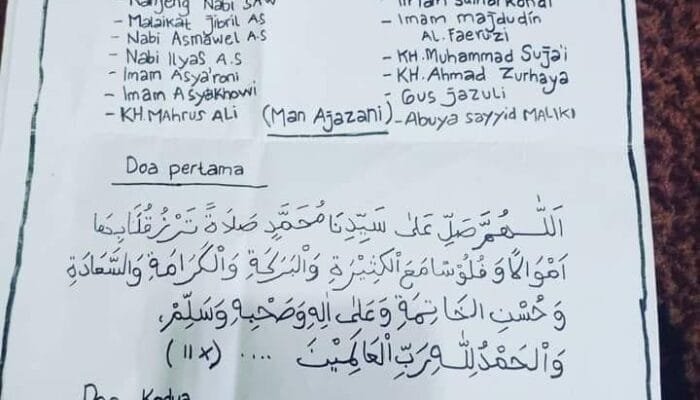 - Kanjeng Nabi SAW
- Malaikat Jibril AS
- Nabi Asmawel A.S
- Nabi Ilyas A.S
- Imam Asya'roni
- Imam Asyakhowi
- KH. Mahrus Ali
- Imam
- Imam majdudin
AL. Faeruzi
- KH. Muhammad Suja'i
- KH. Ahmad Zurhaya
- Gus Jazuli
(Man Ajazani) - Abuya Sayyid MALIKI
Doa pertama
اَللّٰهُمَّ صَلِّ عَلَى سَيِّدِنَا مُحَمَّدٍ صَلَاةً تَرْزُقُنَا بِهَا
اَمْوَالًا وَفُلُوْسًا مَعَ الْكَثِيْرَةِ وَالْبَرَكَةِ وَالْكَرَامَةِ وَالسَّعَادَةِ
وَحُسْنِ الْخَاتِمَةِ وَعَلَى اٰلِهِ وَصَحْبِهِ وَسَلِّمْ،
وَالْحَمْدُ لِلّٰهِ رَبِّ الْعَالَمِيْنَ .... (11 x)
Doa Kedua